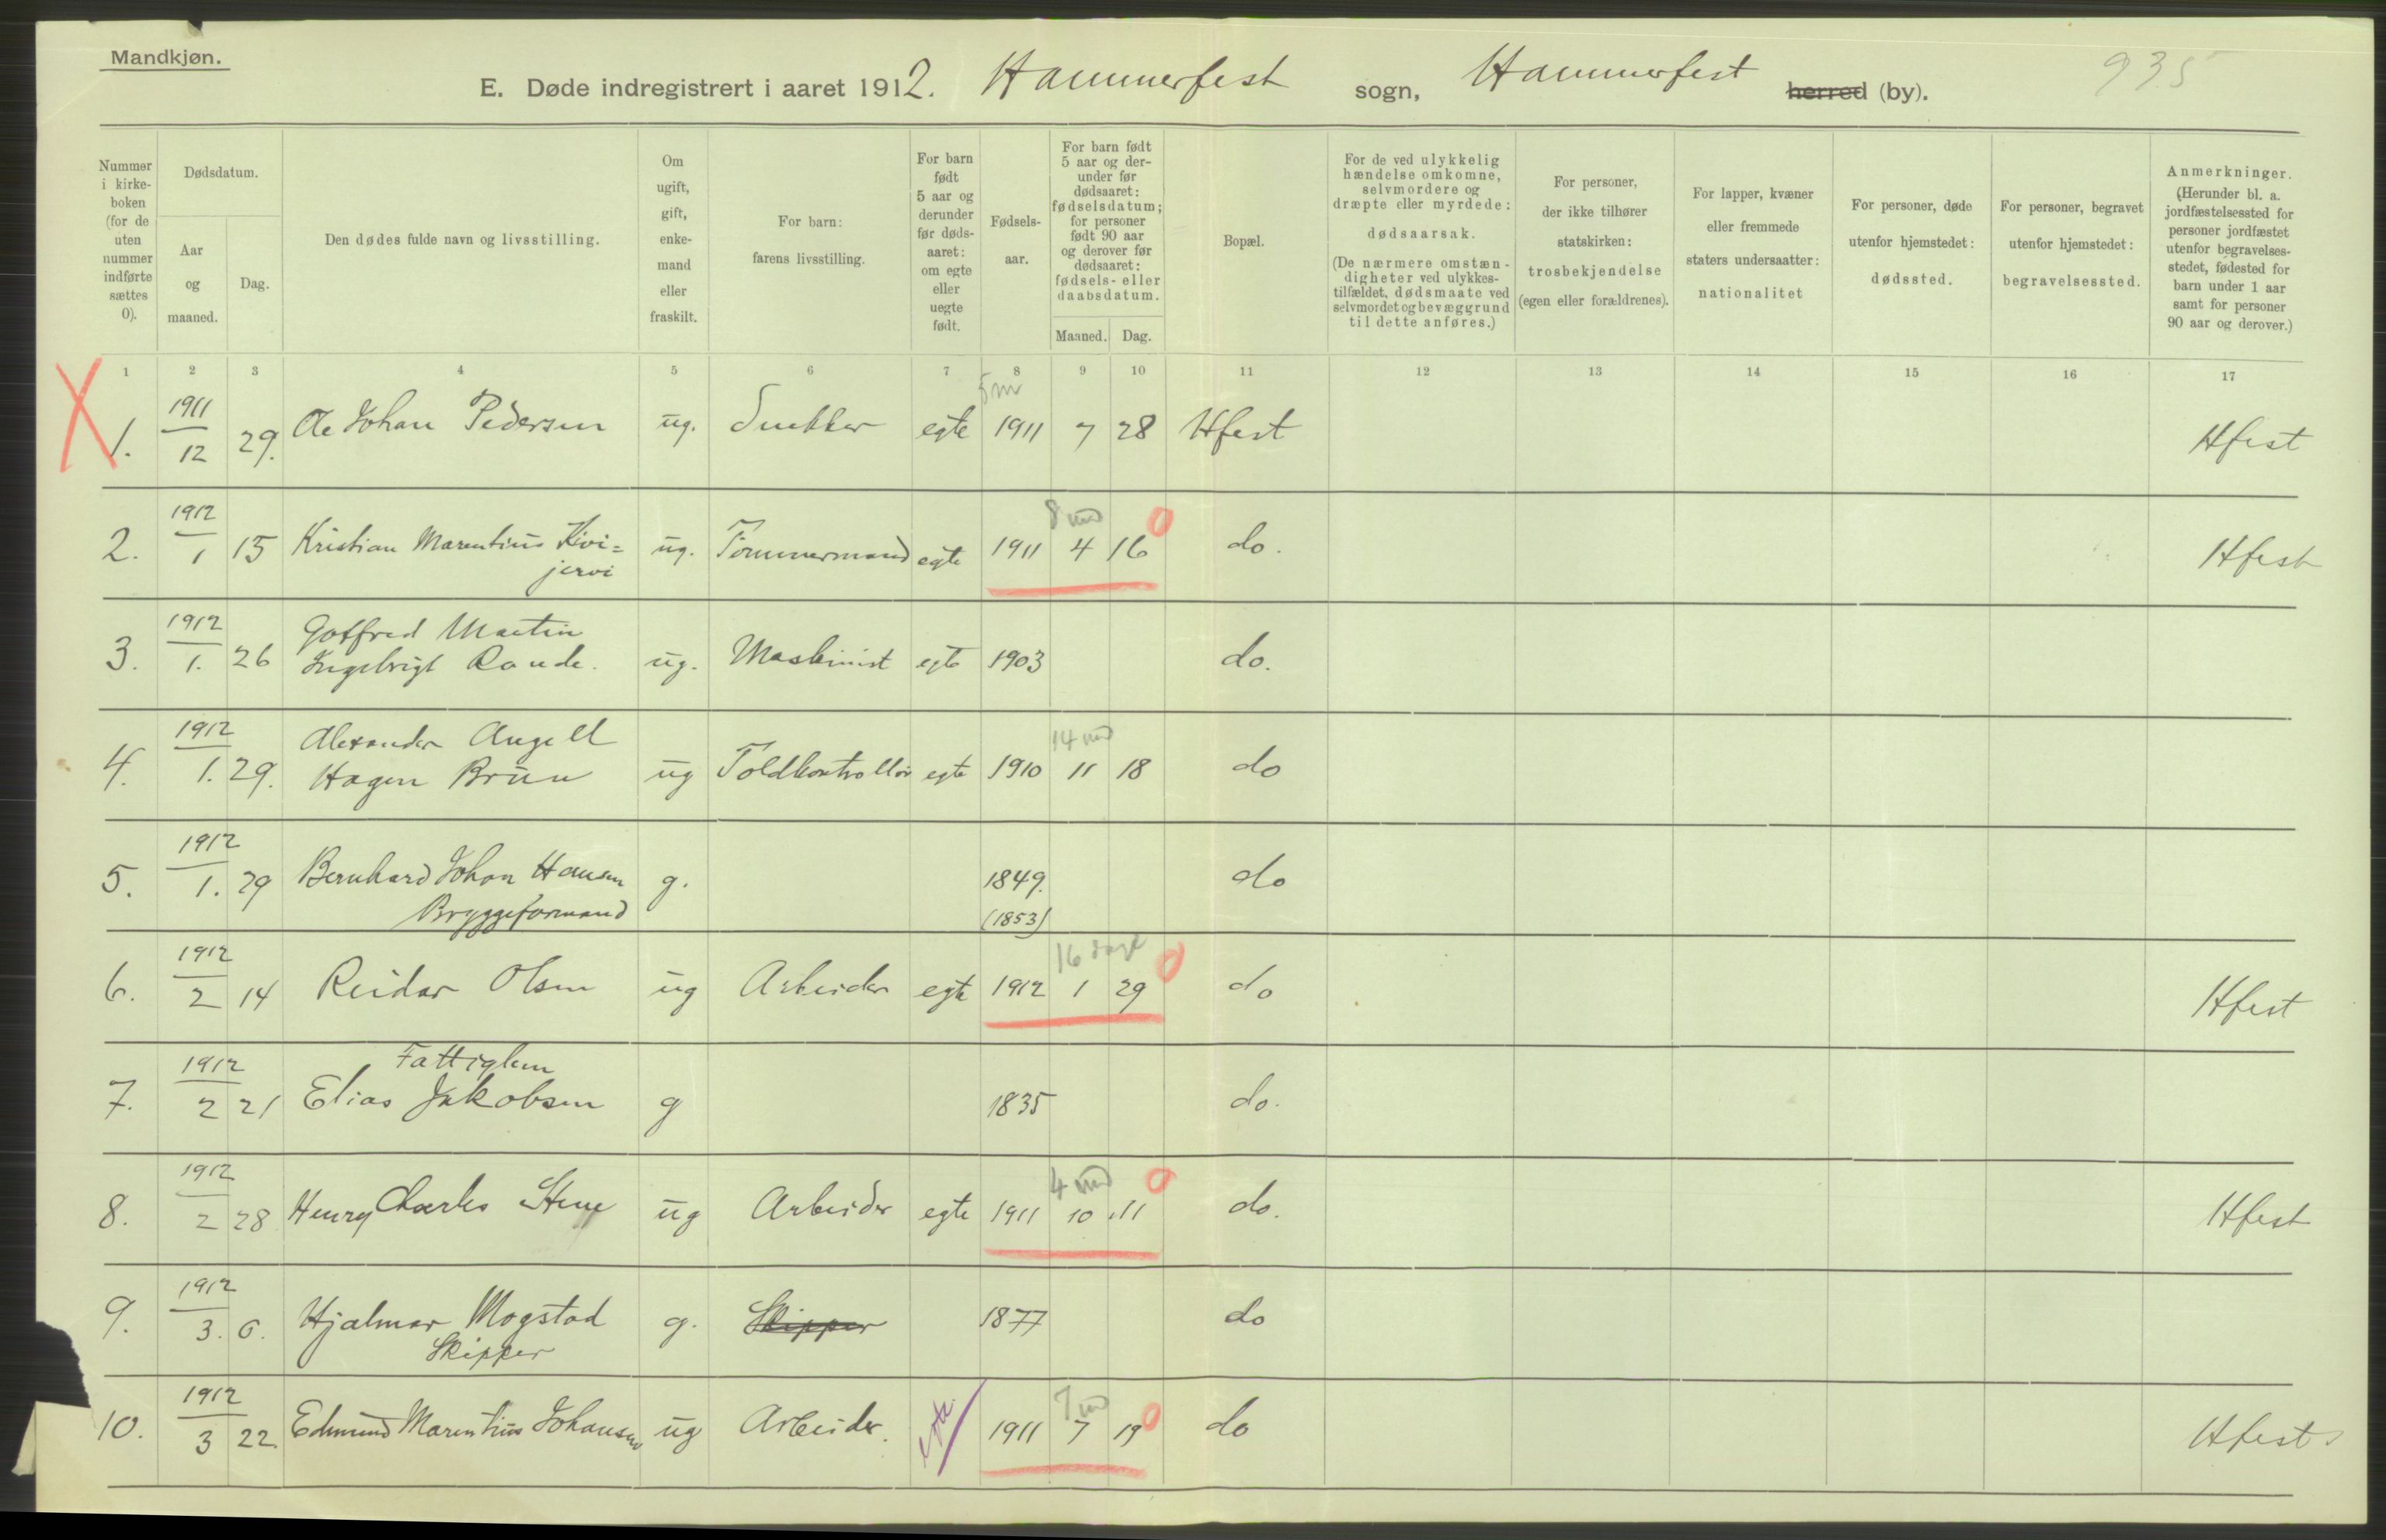 Mandkjøn.
E. Døde indregistrert i aaret 1912. Hammerfest sogn, Hammerfest herred (by). 935
Nummer i kirkeboken (for de uten nummer indførte sættes 0).
Dødsdatum.
Aar og maaned.
Dag.
Den dødes fulde navn og livsstilling.
Om ugift, gift, enkemand eller fraskilt.
For barn: farens livsstilling.
For barn født 5 aar og derunder før dødsaaret: om egte eller uegte født.
Fødselsaar.
For barn født 5 aar og derunder før dødsaaret: fødselsdatum; for personer født 90 aar og derover før dødsaaret: fødsels- eller daabsdatum.
Maaned. Dag.
Bopæl.
For de ved ulykkelig hændelse omkomne, selvmordere og dræpte eller myrdede: dødsaarsak. (De nærmere omstændigheter ved ulykkestilfældet, dødsmaate ved selvmordet og bevæggrund til dette anføres.)
For personer, der ikke tilhører statskirken: trosbekjendelse (egen eller forældrenes).
For lapper, kvæner eller fremmede staters undersaatter: nationalitet
For personer, døde utenfor hjemstedet: dødssted.
For personer, begravet utenfor hjemstedet: begravelsessted.
Anmerkninger. (Herunder bl. a. jordfæstelsessted for personer jordfæstet utenfor begravelsesstedet, fødested for barn under 1 aar samt for personer 90 aar og derover.)
1 2 3 4 5 6 7 8 9 10 11 12 13 14 15 16 17
X
5 m
1. 1911 12 29. Ole Johan Pedersen ug. Snekker egte 1911 7 28 Hfest Hfest
8 md 0
2. 1912 1 15 Kristian Marentius Kivi=
jervi ug. Tømmermand egte 1911 4 16 do. Hfest
3. 1912 1. 26 Gotfred Martin
Ingebrigt Rande. ug. Maskinist egte 1903 do.
14 md
4. 1912 1. 29. Alexander Angell
Hagen Brun ug Toldkontrollør egte 1910 11 18 do
5. 1912 1. 29 Bernhard Johan Hansen g. 1849. do
Bryggeformand (1853)
16 dage 0
6. 1912 2 14 Reidar Olsen ug Arbeider egte 1912 1 29 do Hfest
Fattiglem
7. 1912 2 21 Elias Jakobsen g 1835 do.
4 md 0
8. 1912 2 28 Henry Charles Stene ug Arbeider egte 1911 10 11 do. Hfest
9. 1912 3. 6. Hjalmar Mogstad g. Skipper 1877 do
Skipper
7 md 0
10. 1912 3 22. Edmund Marentius Johansen ug Arbeider. egte 1911 7 19 do Hfest